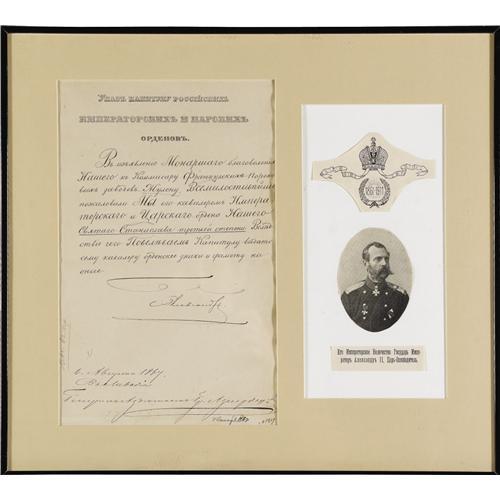 Указъ капитулу россійскихъ
императорскихъ и царскихъ
орденовъ.
Въ изъявленіе Монаршаго благоволенія
Нашего къ Коммисару Французскихъ Порохо-
выхъ заводовъ, Всемилостивѣйше
пожаловали Мы его кавалеромъ Импера-
торскаго и Царскаго ордена Нашего
Святаго Станислава третьей степени Вслѣд-
ствіе сего Повелѣваемъ Капитулу выдать
сему кавалеру орденскіе знаки и грамоту на
оные
Александръ
6. Августа 1867.
1857-1911
Его Императорское Величество Государь Импе-
раторъ Александръ II, Царь-Освободитель.